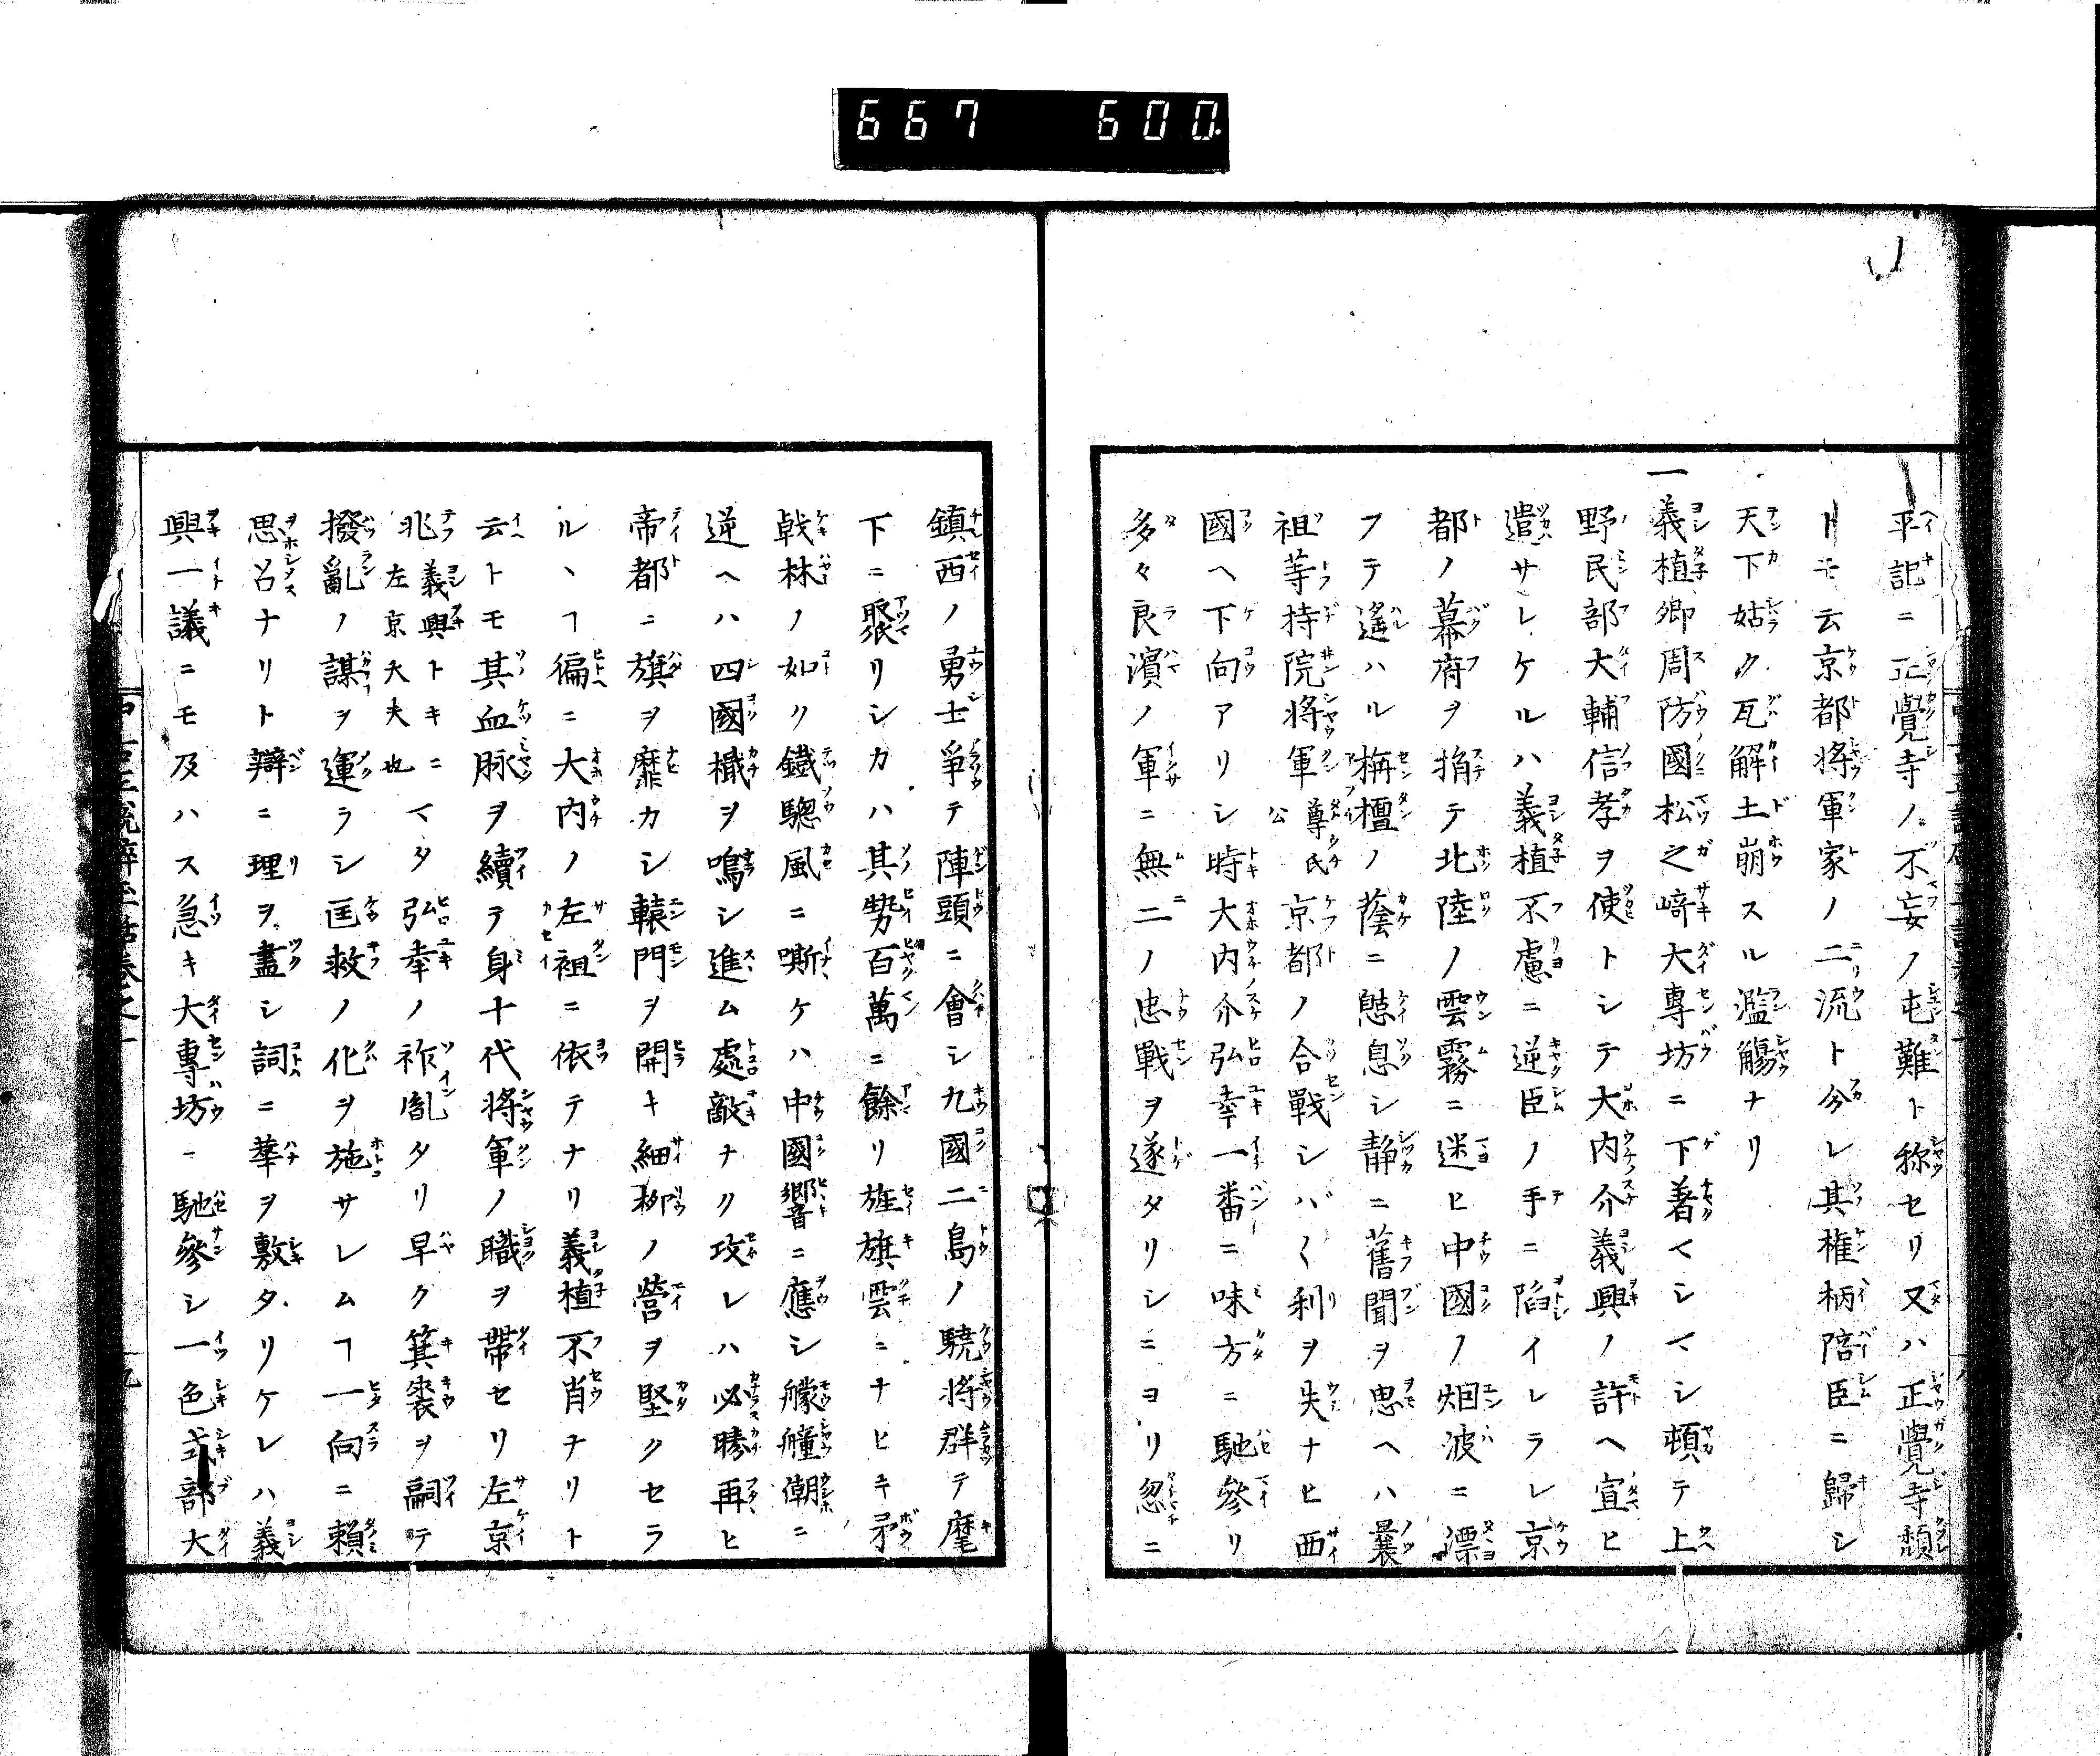 667 600
平記ニ正覺寺ノ不妄ノ屯難ト称セリ又ハ正覺寺頽
トモ云京都將軍家ノ二流ト分レ其権柄陪臣ニ歸シ
天下姑ク瓦解土崩スル濫觴ナリ
一義植卿周防國松之﨑大專坊ニ下著マシマシ頓テ上
野民部大輔信孝ヲ使トシテ大内介義興ノ許ヘ宣ヒ
遣サレケルハ義植不慮ニ逆臣ノ手ニ陷イレラレ京
都ノ幕府ヲ捐テ北陸ノ雲霧ニ迷ヒ中國ノ烟波ニ漂
フテ遙ハル栴檀ノ蔭ニ憇息シ静ニ舊聞ヲ思ヘハ曩
祖等持院將軍尊氏公京都ノ合戰シバ〱利ヲ失ナヒ西
國ヘ下向アリシ時大内介弘幸一番ニ味方ニ馳參リ
多々良濱ノ軍ニ無二ノ忠戰ヲ遂タリシニヨリ忽ニ
鎮西ノ勇士爭テ陣頭ニ會シ九國二島ノ驍將群テ麾
下ニ聚リシカハ其勢百萬ニ餘リ旌旗雲ニナヒキ矛
戟林ノ如ク鐵驄風ニ嘶ケハ中國響ニ應シ艨艟潮ニ
逆ヘハ四國檝ヲ鳴シ進ム處敵ナク攻レハ必勝再ヒ
帝都ニ旗ヲ靡カシ轅門ヲ開キ細柳ノ營ヲ堅クセラ
ルヽヿ偏ニ大内ノ左袒ニ依テナリ義植不肖ナリト
云トモ其血脉ヲ續テ身十代將軍ノ職ヲ帶セリ左京
兆義興トキニ左京大夫也マタ弘幸ノ祚胤タリ早ク箕裘ヲ嗣テ
撥亂ノ謀ヲ運ラシ匡救ノ化ヲ施サレムヿ一向ニ頼
思召ナリト辯ニ理ヲ盡シ詞ニ華ヲ敷タリケレハ義
興一議ニモ及ハス急キ大專坊ニ馳參シ一色式部大